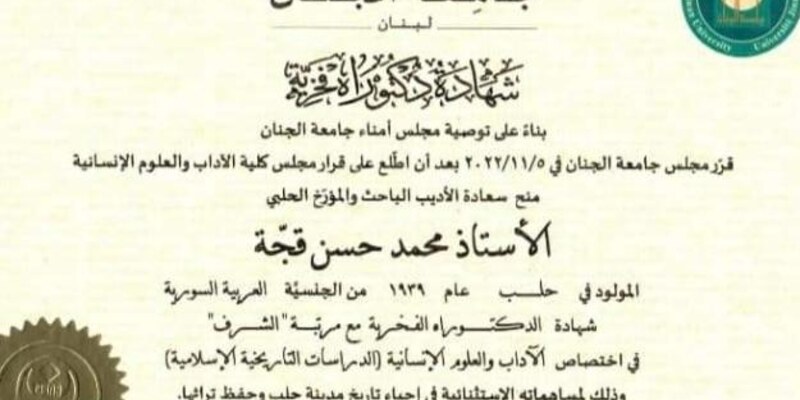 لبنان
شهادة دكتوراه فخرية
بناءً على توصية مجلس أمناء جامعة الجنان
قرّر مجلس جامعة الجنان في ٢٠٢٢/١١/٥ بعد أن اطّلع على قرار مجلس كلية الآداب والعلوم الإنسانية
منح سعادة الأديب الباحث والمؤرّخ الحلبي
الأستاذ محمد حسن قجّة
المولود في حلب عام ١٩٣٩ من الجنسيّة العربية السورية
شهادة الدكتوراه الفخرية مع مرتبّة "الشرف"
في اختصاص الآداب والعلوم الإنسانية (الدراسات التاريخية الإسلامية)
وذلك لمساهماته الإستثنائية في إحياء تاريخ مدينة حلب وحفظ تراثها.